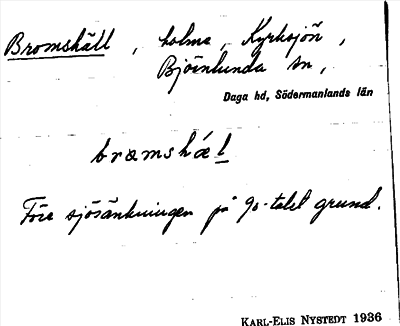 Bromshäll, holme, Kyrksjön,
Björnlunda sn,
Daga hd, Södermanlands län
bromshǽl
Före sjösänkningen på 90-talet grund.
KARL-ELIS NYSTEDT 1936